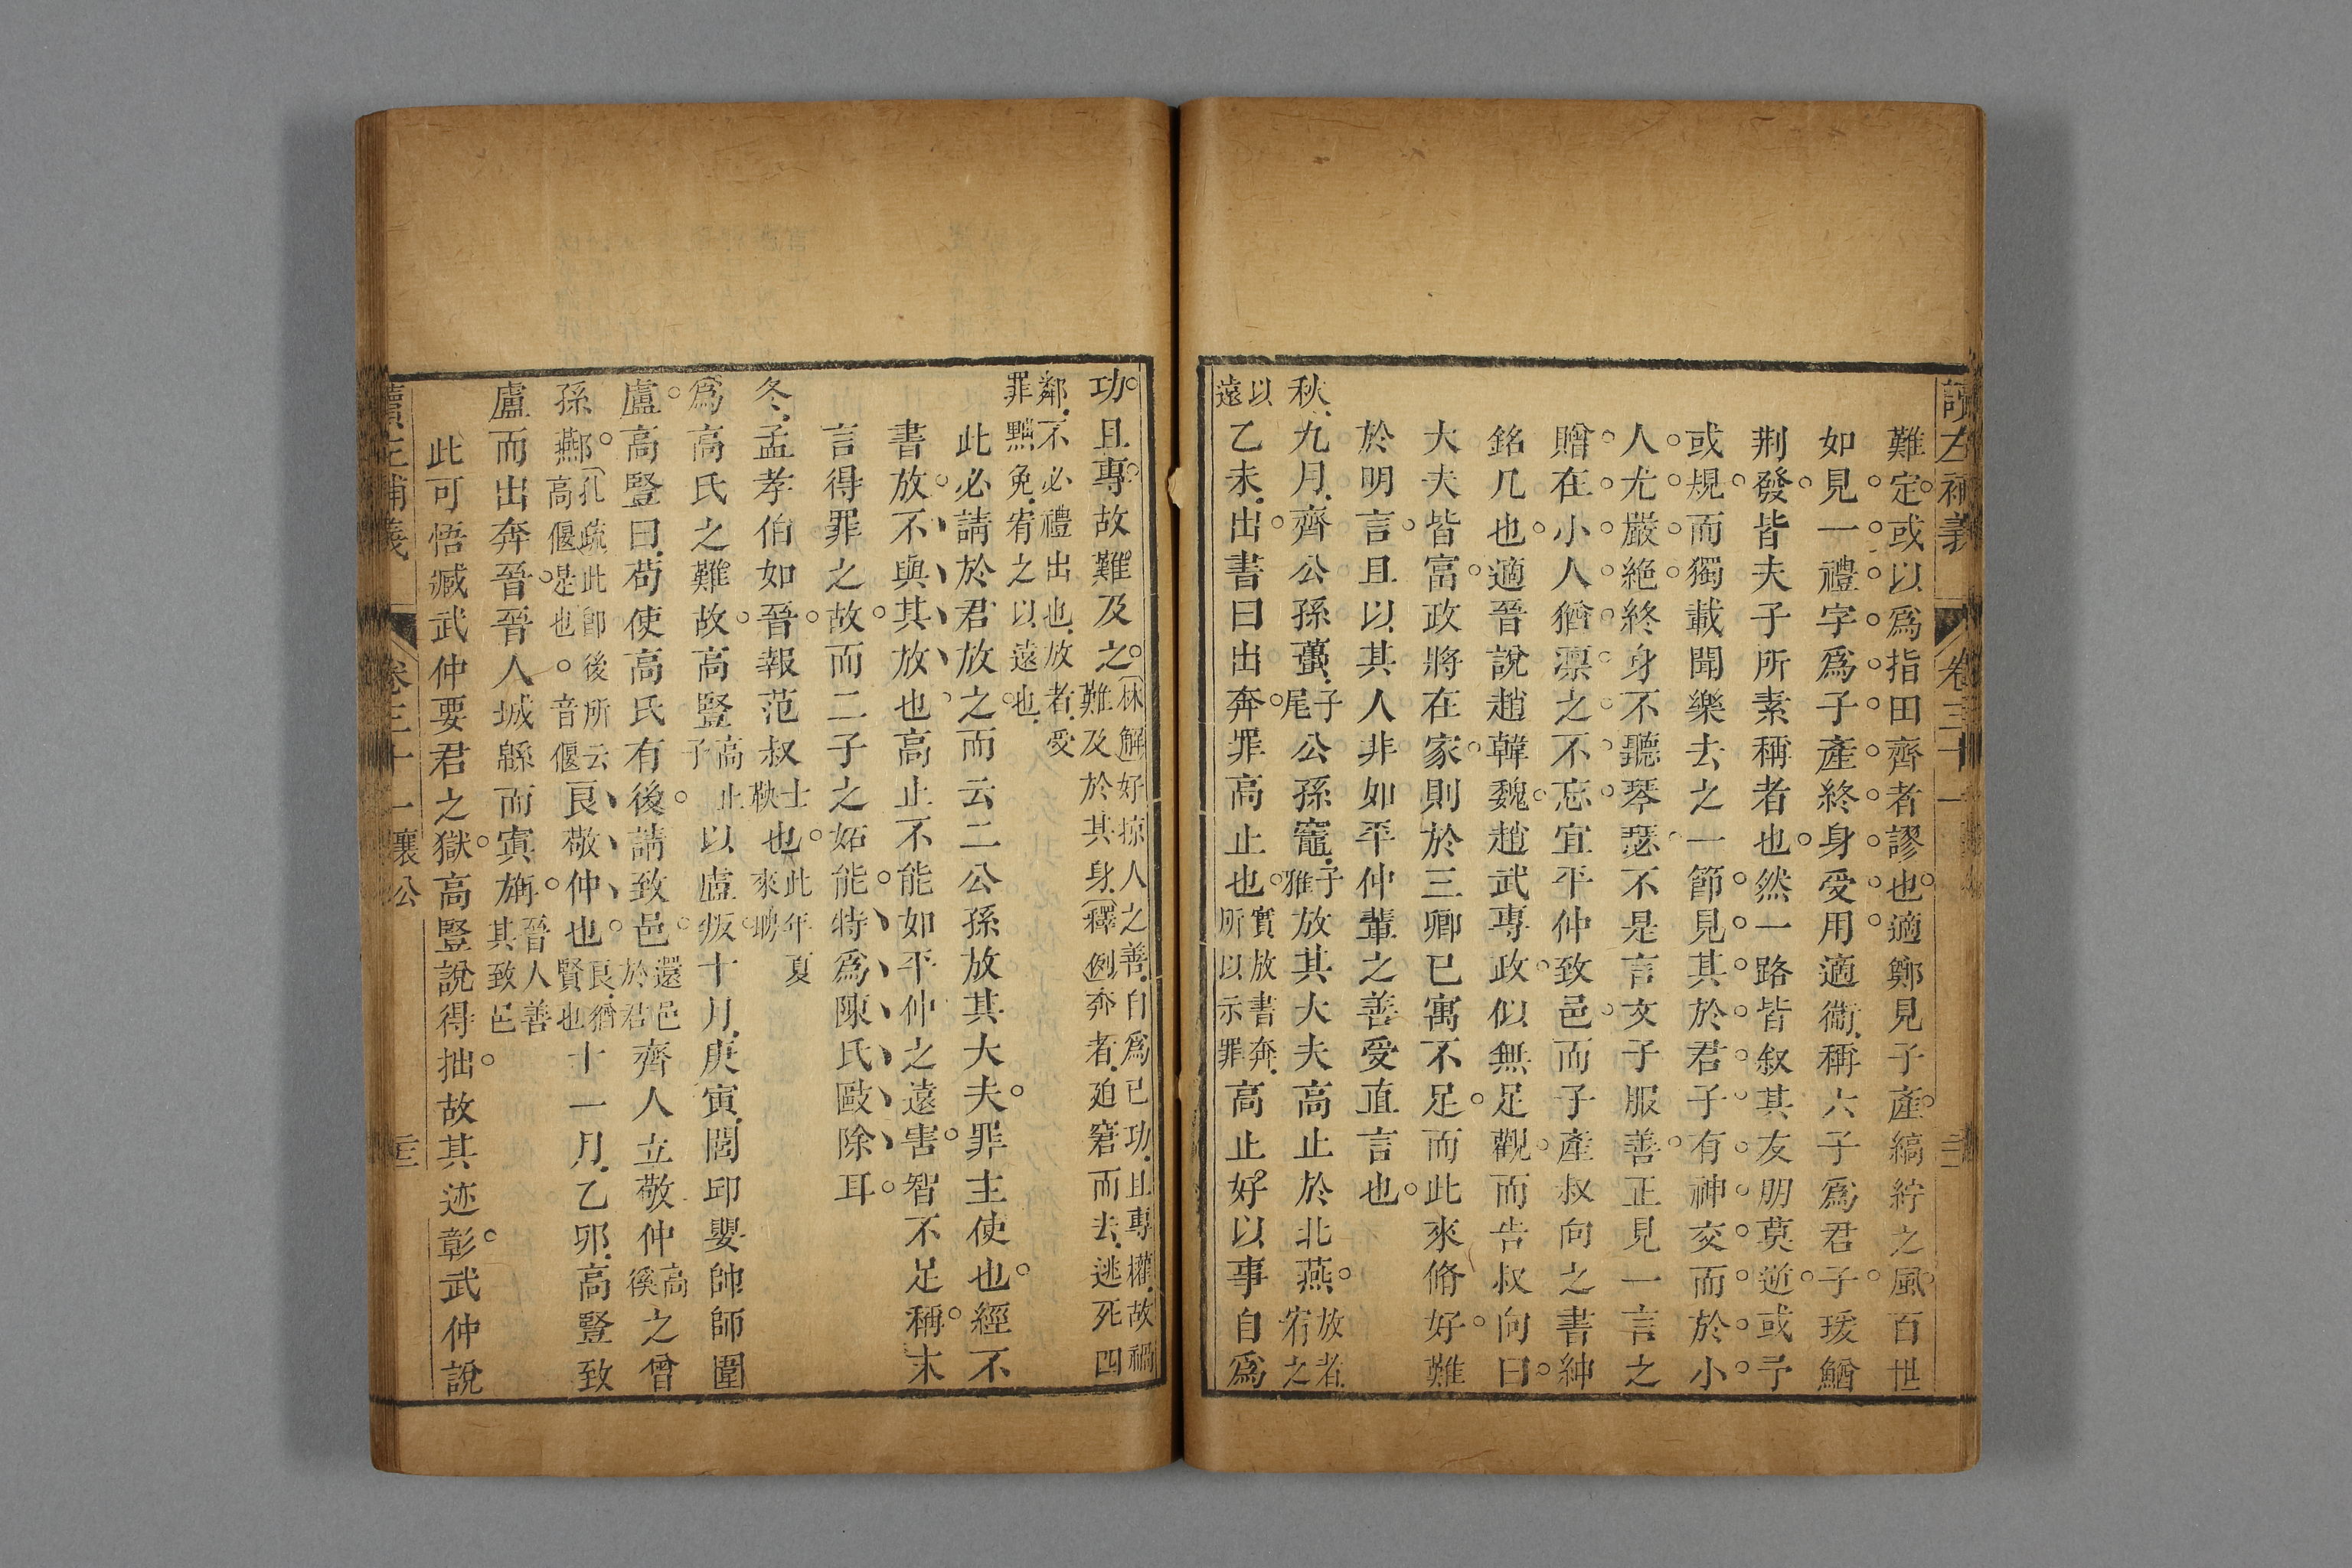 讀左補義 卷三十一
難定或以爲指田齊者謬也適鄭見子產縞紵之風百世
如見一禮字爲子產終身受用適衞稱六子爲君子瑗鰌
荆發皆夫子所素稱者也然一路皆叙其友朋莫逆或予
或規而獨載聞樂去之一節見其於君子有神交而於小
人尤嚴絶終身不聽琴瑟不是言文子服善正見一言之
贈在小人猶凛之不忘宜平仲致邑而子產叔向之書紳
銘几也適晉說趙韓魏趙武專政似無足觀而告叔向曰
大夫皆富政將在家則於三卿已寓不足而此來脩好難
於明言且以其人非如平仲輩之善受直言也
秋九月齊公孫蠆子尾公孫竈子雅放其大夫高止於北燕放者宥之
以遠乙未出書曰出奔罪高止也實放書奔所以示罪高止好以事自爲
功且專故難及之林解好掠人之善自爲已功且專權故禍難及於其身釋例奔者廹窘而去逃死四
鄰不必禮出也放者受罪黜免宥之以遠也
此必請於君放之而云二公孫放其大夫罪主使也經不
書放不與其放也高止不能如平仲之遠害智不足稱末
言得罪之故而二子之妬能特爲陳氏毆除耳
冬孟孝伯如晉報范叔士鞅也此年夏來聘
爲高氏之難故高豎高止子以盧叛十月庚寅閭邱嬰帥師圍
盧高豎曰茍使高氏有後請致邑還邑於君齊人立敬仲高傒之曾
孫酀孔疏此卽後所云高偃是也音偃良敬仲也良猶賢也十一月乙卯高豎致
盧而出奔晉晉人城緜而寘旃晉人善其致邑
此可悟臧武仲要君之獄高豎說得拙故其迹彰武仲說
讀左補義 卷三十一 襄公